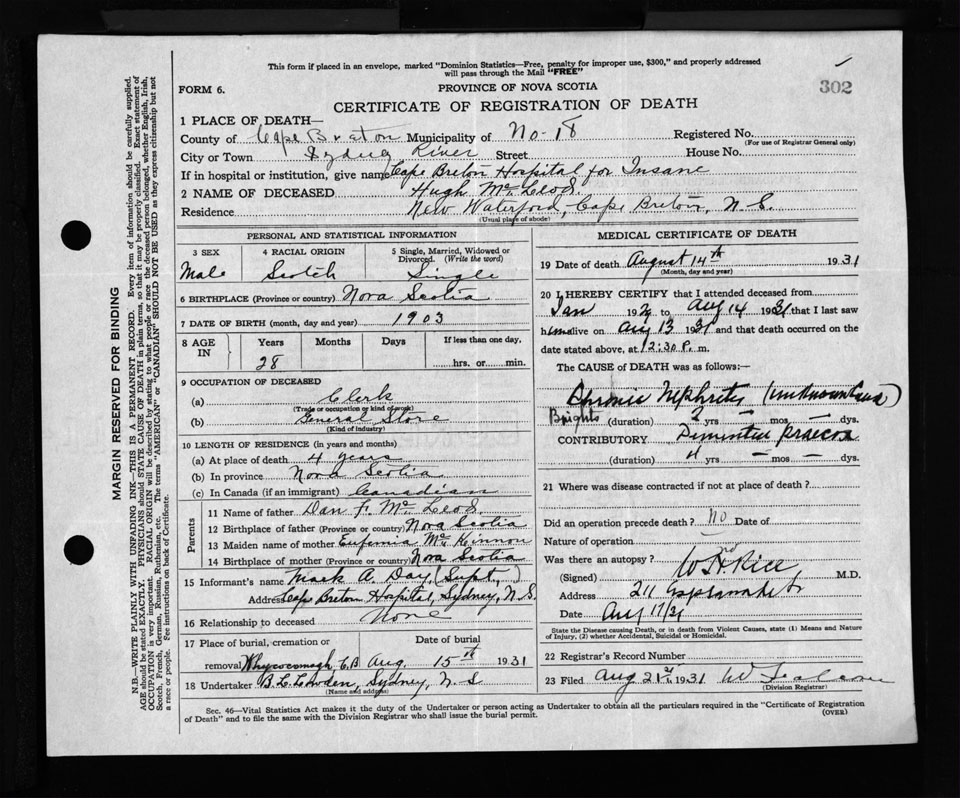 This form if placed in an envelope, marked "Dominion Statistics—Free, penalty for improper use, $300," and properly addressed
will pass through the Mail "FREE"
302
FORM 6.
PROVINCE OF NOVA SCOTIA
CERTIFICATE OF REGISTRATION OF DEATH
1 PLACE OF DEATH—
County of Cape Breton Municipality of No-18 Registered No.
(For use of Registrar General only)
City or Town Sydney River Street House No.
If in hospital or institution, give name Cape Breton Hospital for Insane
2 NAME OF DECEASED Hugh McLeod.
Residence New Waterford, Cape Breton, N.S.
(Usual place of abode)
PERSONAL AND STATISTICAL INFORMATION
3 SEX 4 RACIAL ORIGIN 5 Single, Married, Widowed or
Divorced. (Write the word)
Male Scotch Single
6 BIRTHPLACE (Province or country) Nova Scotia
7 DATE OF BIRTH (month, day and year) 1903
8 AGE IN Years Months Days If less than one day,
28 hrs. or min.
9 OCCUPATION OF DECEASED
(a) Clerk
(Trade or occupation or kind of work)
(b) General Store
(Kind of industry)
10 LENGTH OF RESIDENCE (in years and months)
(a) At place of death 4 years
(b) In province Nova Scotia
(c) In Canada (if an immigrant) Canadian
Parents
11 Name of father Dan F. McLeod.
12 Birthplace of father (Province or country) Nova Scotia
13 Maiden name of mother Eufemia McKinnon
14 Birthplace of mother (Province or country) Nova Scotia
15 Informant's name Mark A. Day, (Supt.,)
Address Cape Breton Hospital, Sydney, N.S.
16 Relationship to deceased None
17 Place of burial, cremation or Date of burial
removal Whycocomagh C.B Aug. 15th 1931
18 Undertaker B. L. Lowden, Sydney, N.S
(Name and address)
MEDICAL CERTIFICATE OF DEATH
19 Date of death August 14th 1931
(Month, day and year)
20 I HEREBY CERTIFY that I attended deceased from
Jan 192 to Aug 14 1931 that I last saw
him alive on Aug 13 1931 and that death occurred on the
date stated above, at 12:30 P. m.
The CAUSE of DEATH was as follows:—
Chronic Nephritis (unknown cause)
Brights (duration) 2 yrs — mos — dys.
CONTRIBUTORY Dementia praecox
(duration) 4 yrs — mos — dys.
21 Where was disease contracted if not at place of death?
Did an operation precede death? no Date of
Nature of operation
Was there an autopsy? no
(Signed) W H Rice M.D.
Address 211 Esplanade
Date Aug 17/31
State the Disease causing Death, or in death from Violent Causes, state (1) Means and Nature
of Injury, (2) whether Accidental, Suicidal or Homicidal.
22 Registrar's Record Number
23 Filed Aug 21st 1931 W
(Division Registrar)
Sec. 46—Vital Statistics Act makes it the duty of the Undertaker or person acting as Undertaker to obtain all the particulars required in the "Certificate of Registration
of Death" and to file the same with the Division Registrar who shall issue the burial permit.
(OVER)
MARGIN RESERVED FOR BINDING
N.B.—WRITE PLAINLY WITH UNFADING INK—THIS IS A PERMANENT RECORD. Every item of information should be carefully supplied.
AGE should be stated EXACTLY. PHYSICIANS should STATE CAUSE OF DEATH in plain terms, so that it may be properly classified. Exact statement of
OCCUPATION is very important. RACIAL ORIGIN will be described by stating to what people or race the deceased person belonged, whether English, Irish,
Scotch, French, German, Russian, Ruthenian, etc. The terms "AMERICAN" or "CANADIAN" SHOULD NOT BE USED as they express citizenship but not
a race or people. See instructions on back of Certificate.